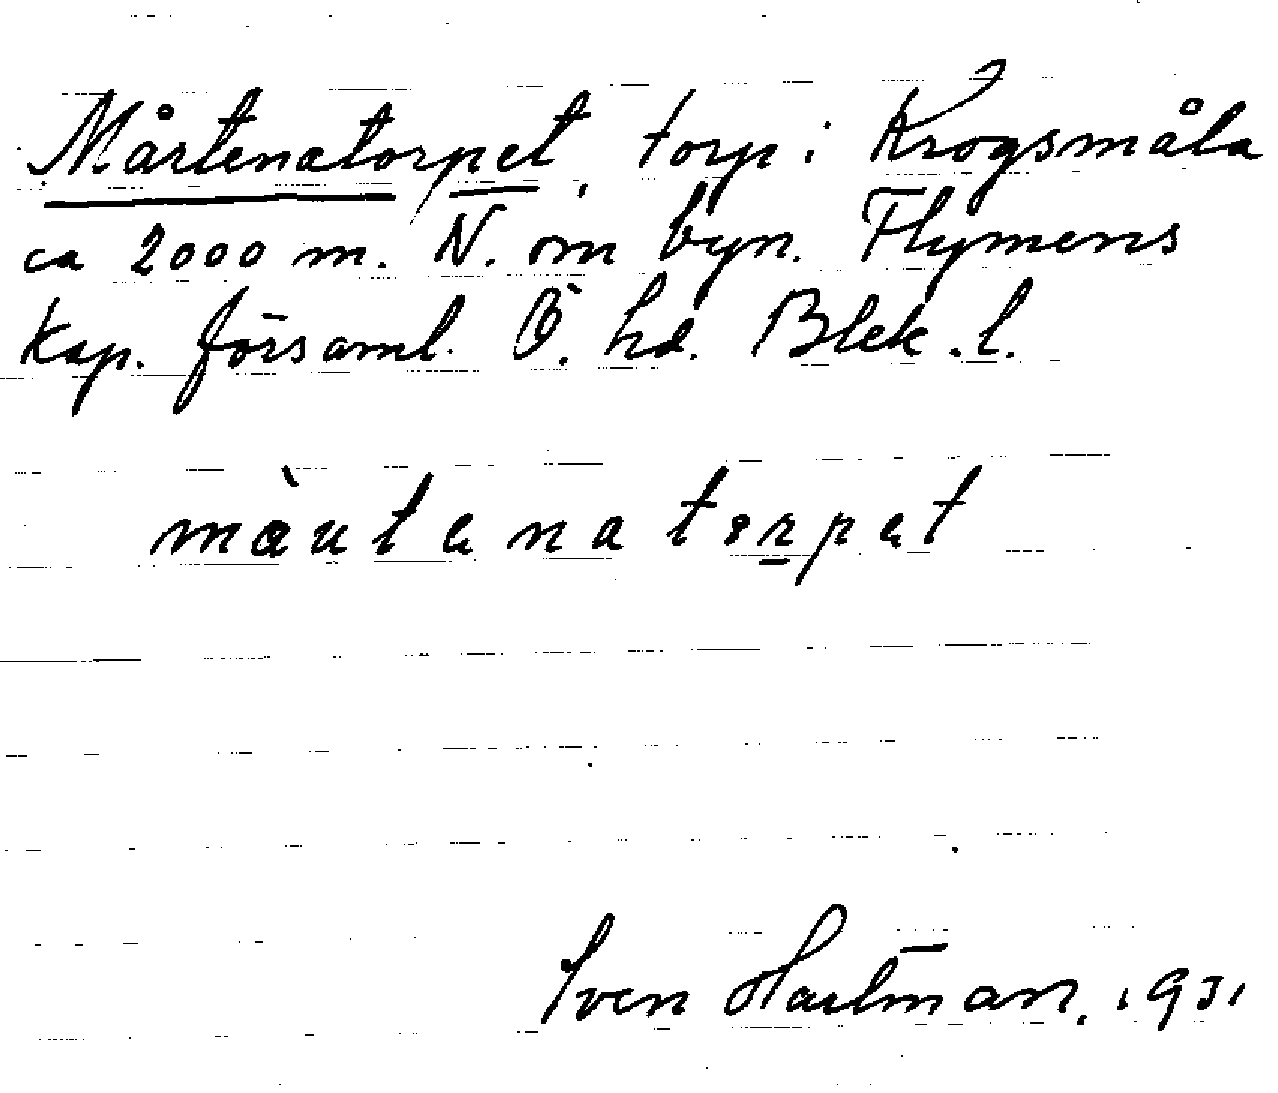 Mårtenatorpet, torp i Krogsmåla
ca 2000 m. N. om byn. Flymens
Kap. församl. Ö. hd. Blek. l.
màutenatorpet
Sven Hartman. 1931